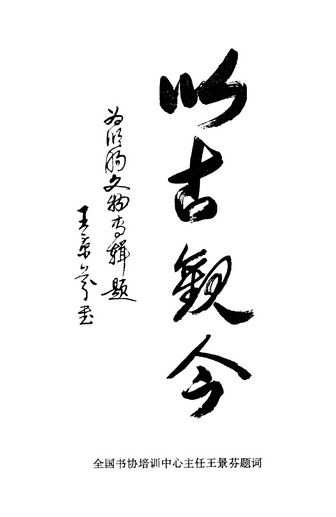 以古觀今
为临朐文物专辑题
王景芬书
全国书协培训中心主任王景芬题词